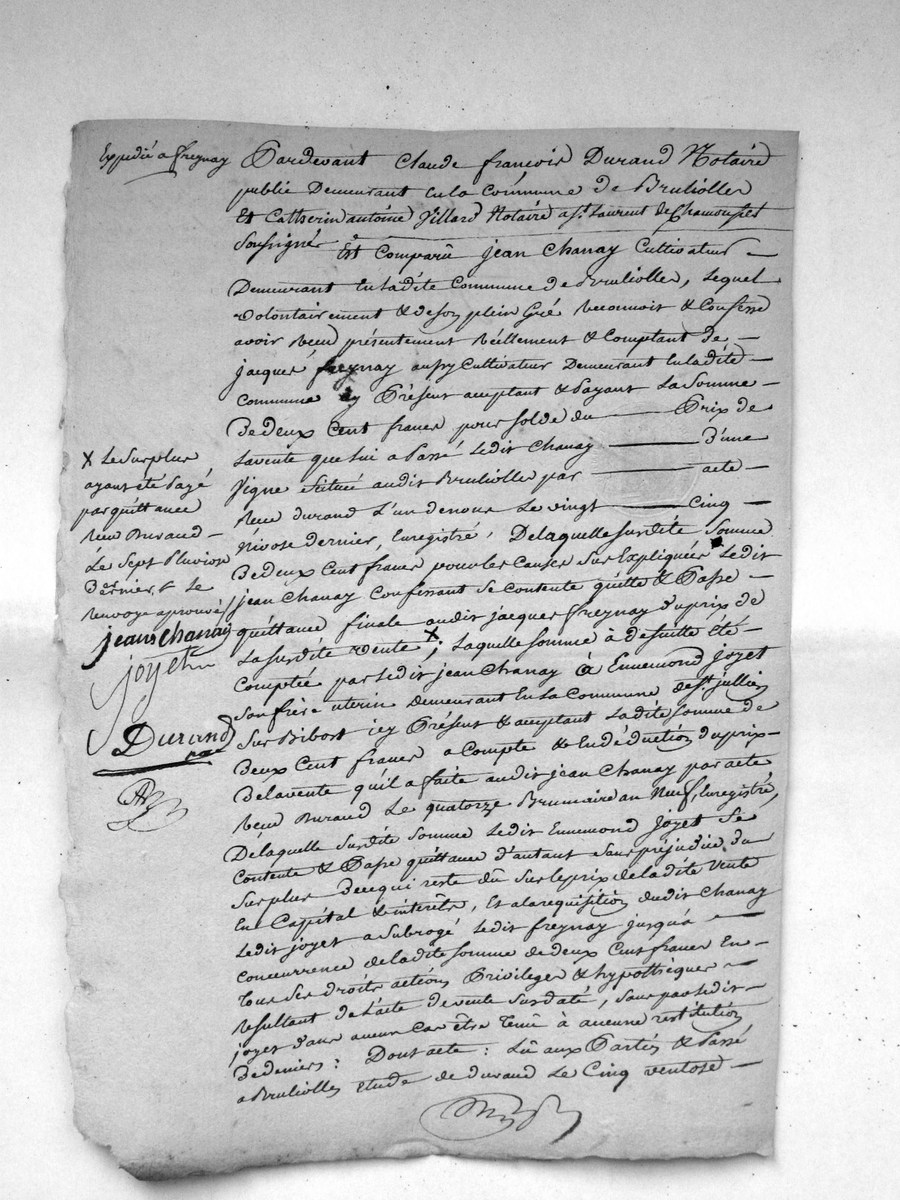 Expedié a freynay
Pardevant Claude françois Durand Notaire
public Demeurant en la Commune de Brullioller
Et Catherin antoine Villard Notaire a St. Laurent de Chamousset
Soussignés Est Comparû jean Chanay Cultivateur
Demeurant en ladite Commune de Brullioller, Lequel
volontairement & de son plein Gré reconnoit & Confesse
avoir reçu présentement réellement & Comptant de
jacques freynay aussy Cultivateur Demeurant en ladite
Commune icy Présent acceptant & Payant La Somme
De deux Cent francs pour solde du Prix de
La vente que lui a Passé Ledit Chanay D'une
Vigne Scituée audit Brullioller par acte
Reçu durand L'un de nous Le vingt Cinq
Nivose dernier, Enregistré, De laquelle susdite Somme
De deux Cent francs pour les Causes sus Expliquées Ledit
jean Chanay Confessant se Contente quitte & Passe
quittance finale audit jacques freynay du prix de
La susdite vente X; Laquelle Somme à de suitte été
Comptée par Ledit jean Chanay à Ennemond joyet
son frère uterin demeurant En La Commune de St. jullien
Sur Bibost icy Présent & acceptant Ladite somme de
Deux Cent francs a Compte & En déduction du prix
De la vente qu'il a faite audit jean Chanay par acte
reçu Durand Le quatorze Brumaire an Neuf, Enregistré,
De laquelle susdite Somme Ledit Ennemond joyet Se
Contente & Passe quittance d'autant Sans préjudice du
Surplus De ce qui reste dû Sur le prix de la dite Vente
En Capital & interêts, Et a la requisition dudit Chanay
Ledit joyet a Subrogé Ledit freynay jusqu'à
Concurrence de ladite somme de deux Cent francs En
Tous Ses droits actions Privileges & hypothèques
resultant de L'acte de vente Susdaté, sans que Ledit
joyet dans aucun Cas être Tenû à aucune restitution
De deniers: Dont acte: Lû aux Parties & Passé
a Brullioller étude de durand Le Cinq ventose
X Le Surplus
ayant été Payé
par quittance
reçu Durand
Le Sept Pluviose
Dernier, & Le
renvoye aprouvé
jean Chanay
joyet
Durand